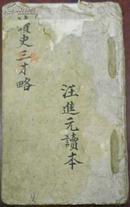 史三才略
汪進元讀本